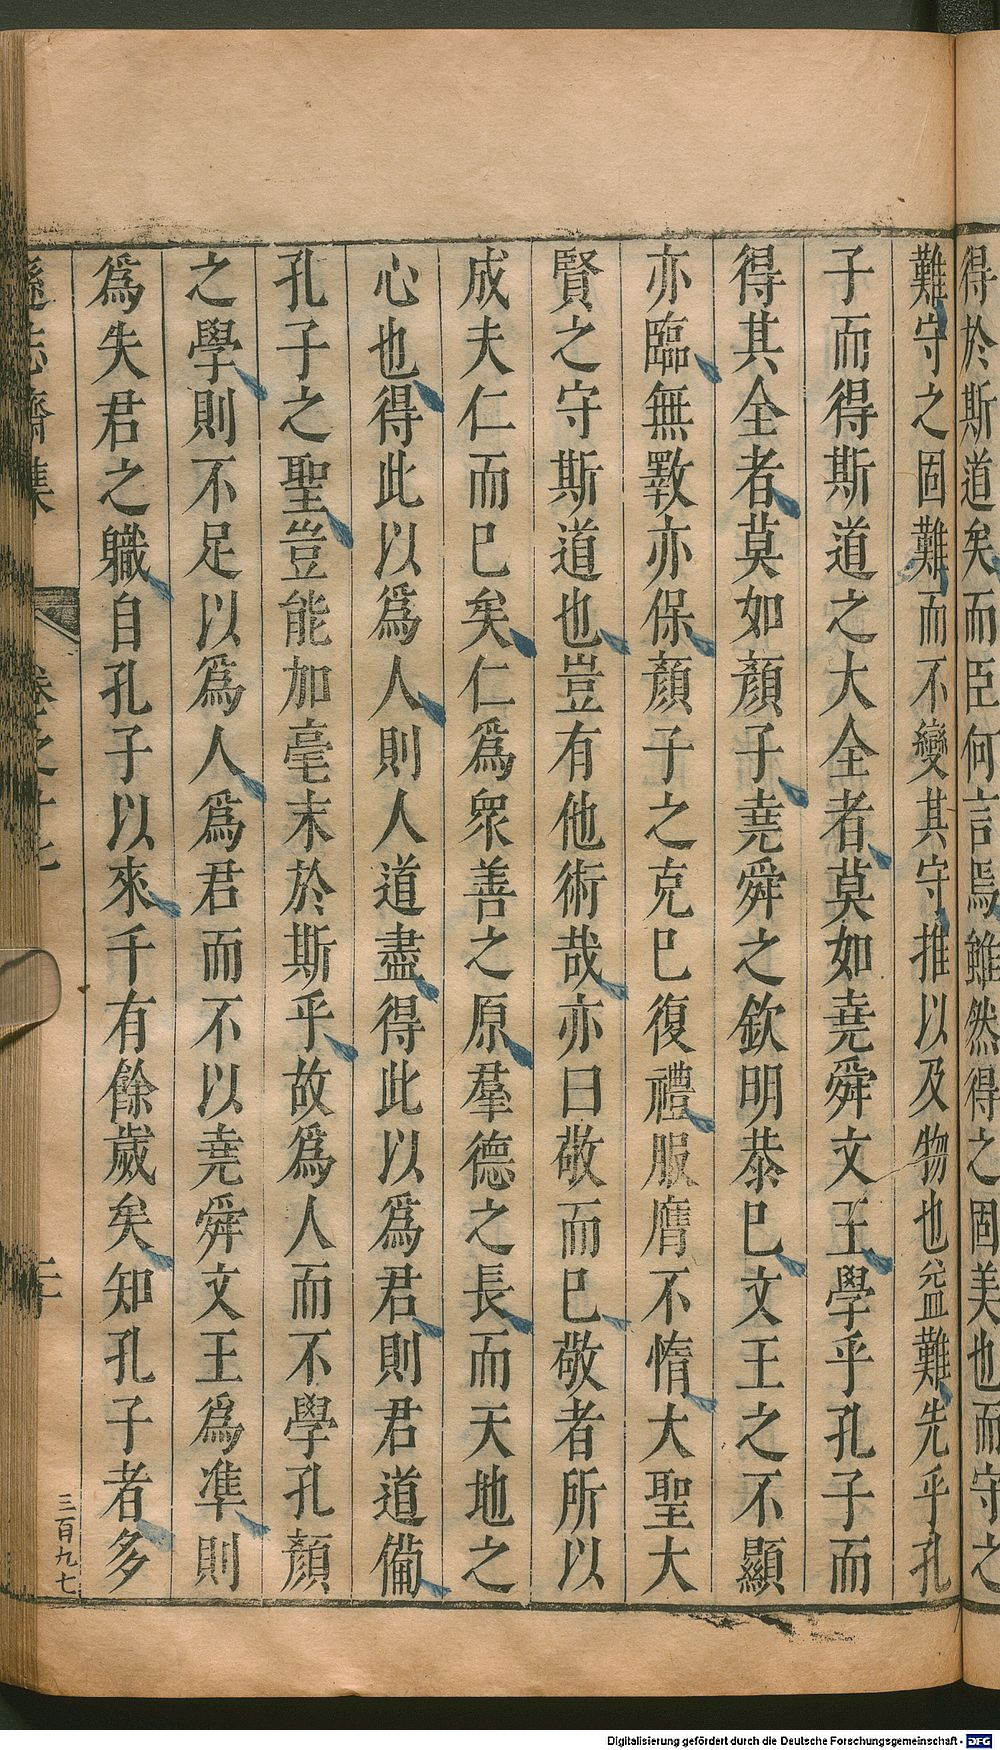 得於斯道矣而臣何言焉雖然得之固美也而守之
難守之固難而不變其守推以及物也益難先乎孔
子而得斯道之大全者莫如堯舜文王學乎孔子而
得其全者莫如顏子堯舜之欽明恭巳文王之不顯
亦臨無斁亦保顏子之克巳復禮服膺不惰大聖大
賢之守斯道也豈有他術哉亦曰敬而巳敬者所以
成夫仁而巳矣仁爲衆善之原羣德之長而天地之
心也得此以爲人則人道盡得此以爲君則君道備
孔子之聖豈能加毫末於斯乎故爲人而不學孔顏
之學則不足以爲人爲君而不以堯舜文王爲準則
爲失君之職自孔子以來千有餘歲矣知孔子者多
三百九七
遜志齋集
卷之十七
二十
Digitalisierung gefördert durch die Deutsche Forschungsgemeinschaft - DFG